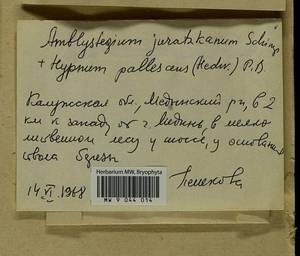 Amblystegium juratzkanum Schimp.
+ Hypnum pallescens (Hedw.) P.B.
Калужская обл., Медынский р-н, в 2
км к западу от г. Медынь, в мелко-
лиственном лесу у шоссе, у основания
ствола березы
14 VI 1968
Herbarium MW, Bryophyta
MW 9 044 014